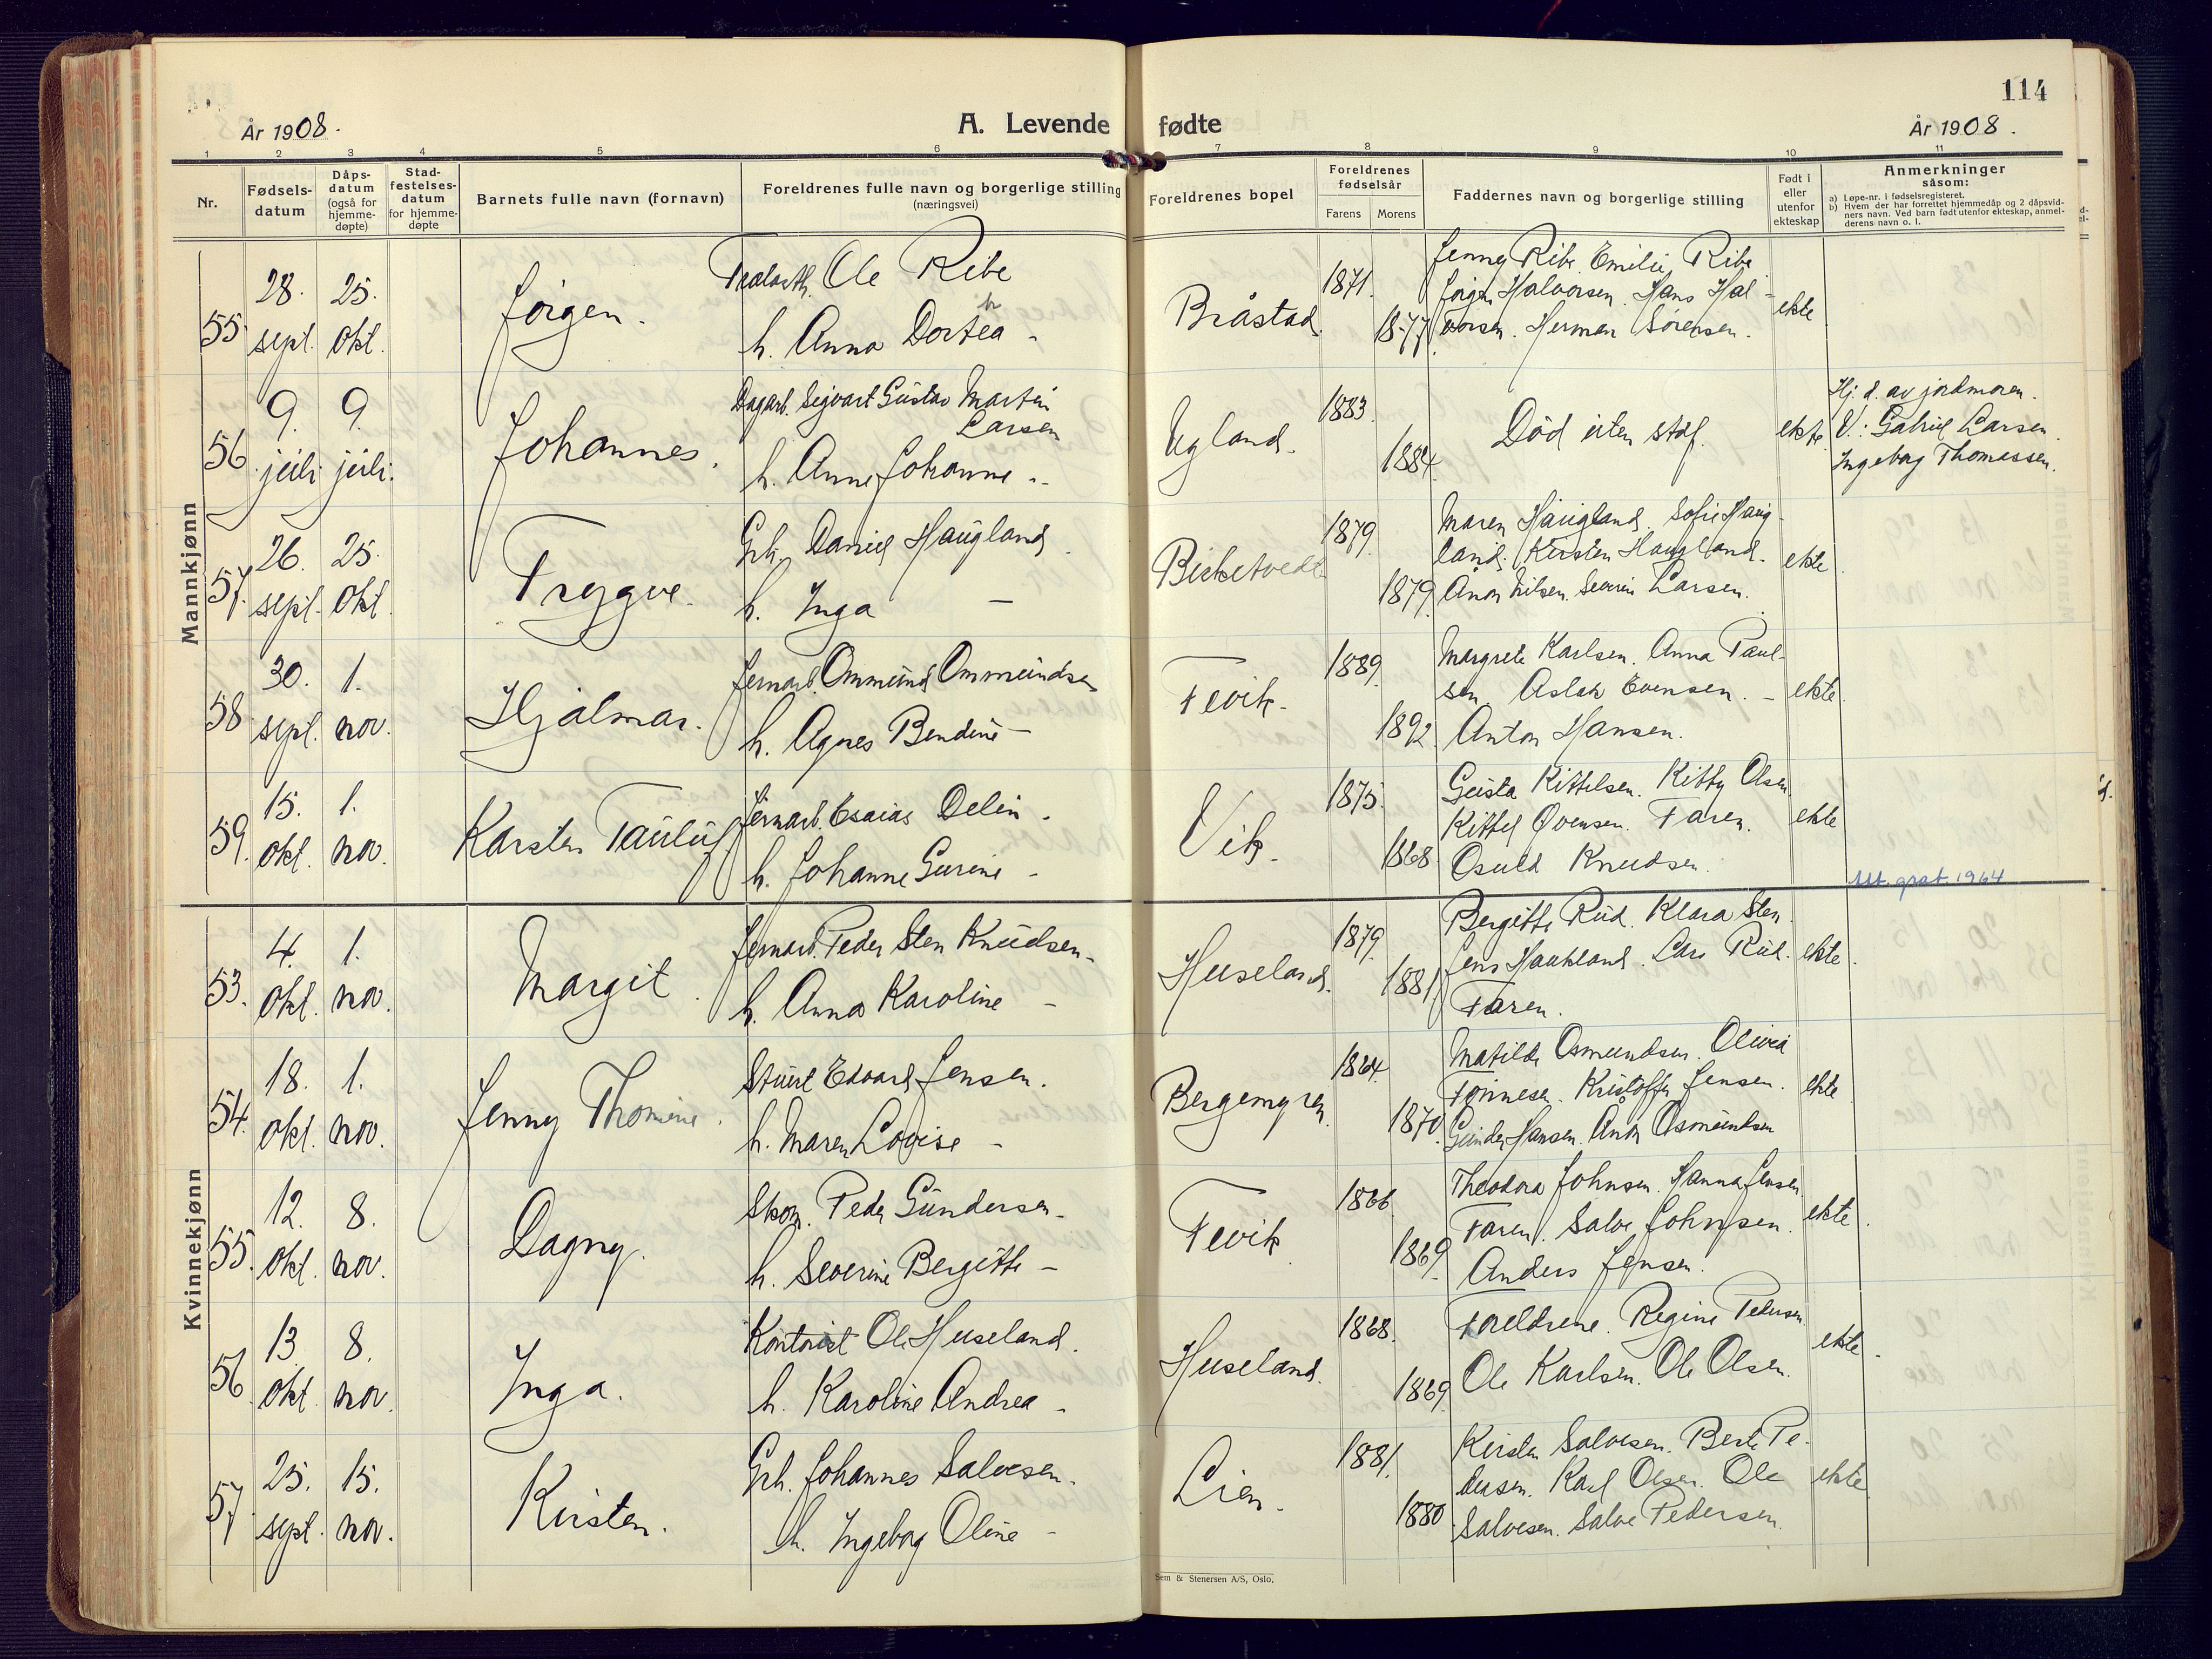 114
År 1908.
A. Levende fødte
År 1908.
1 2 3 4 5 6 7 8 9 10 11
Nr.
Fødsels-
datum
Dåps-
datum
(også for
hjemme-
døpte)
Stad-
festelses-
datum
for hjemme-
døpte
Barnets fulle navn (fornavn)
Foreldrenes fulle navn og borgerlige stilling
(næringsvei)
Foreldrenes bopel
Foreldrenes
fødselsår
Farens Morens
Faddernes navn og borgerlige stilling
Født i
eller
utenfor
ekteskap
Anmerkninger
såsom:
a) Løpe-nr. i fødselsregisteret.
b) Hvem der har forrettet hjemmedåp og 2 dåpsvid-
ners navn. Ved barn født utenfor ekteskap, anmel-
derens navn o. l.
Mannkjønn
55. 28. sept. 25. okt. Jörgen.
Ole Ribe
h. Anna Dortea -
Bråstad. 1871. 1877.
Jenny Ribe. Emilie Ribe
Jörgen Halvorsen. Hans Hal-
vorsen. Herman Sörensen.
ekte
56. 9. juli 9. juli. Johannes.
Dagarb. Sigvart Gustav Martin
Larsen
h. Anne Johanne -
Ugland. 1883. 1884.
Död uten stdf.
ekte
Hj. d. av jordmoren.
V.: Gabriel Larsen.
Ingeborg Thomassen.
57. 26. sept. 25. okt. Trygve.
Grb. Daniel Haugland.
h. Inga -
Birketvedt 1879. 1879.
Maren Haugland. Sofie Haug-
land. Kirsten Haugland.
Anon Nilsen. Severin Larsen.
ekte
58. 30. sept. 1. nov. Hjalmar.
Jernarb. Ommund Ommundsen
h. Agnes Bendine -
Fevik. 1889. 1892.
Margrete Karlsen. Anna Paul-
sen. Aslak Evensen. -
Anton Hansen.
ekte
59. 15. okt. 1. nov. Karsten Pauluf
Jernarb. Esaias Delin.
h. Johanne Gurine -
Vik. 1875. 1868
Gusta Kittelsen. Kitty Olsen
Kittel Ovensen. Faren.
Osuld Knudsen.
ekte
Utt. grat. 1964
Kvinnekjønn
53. 4. okt. 1. nov. Margit.
Jernarb. Peder Sten Knudsen -
h. Anna Karoline -
Huseland. 1879. 1881
Bergitte Rud. Klara Sten.
Jens Haukland. Lars Rud.
Faren.
ekte.
54. 18. okt. 1. nov. Jenny Thomine.
Stuert Edvard Jensen.
h. Maren Lovise -
Bergemyren. 1864. 1870.
Matilde Osmundsen. Olivia
Tönnesen. Kristoffer Jensen.
Gunder Hansen. Anon Osmundsen
ekte
55. 12. okt. 8. nov. Dagny.
Skom. Peder Gundersen -
h. Severine Bergitte -
Fevik. 1866. 1869.
Theodora Johnsen. Hanna Jensen
Faren. Salve Johnsen.
Anders Jensen.
ekte.
56. 13. okt. 8. nov. Inga.
Kontorist Ole Huseland.
h. Karoline Andrea -
Huseland. 1868. 1869.
Foreldrene. Regine Pedersen.
Ole Karlsen. Ole Olsen.
ekte.
57. 25. sept. 15. nov. Kirsten.
Grb. Johannes Salvesen.
h. Ingeborg Oline -
Lien. 1881. 1880
Kirsten Salvesen. Berte Pe-
dersen. Karl Olsen. Ole
Salvesen. Salve Pedersen.
ekte
Sem & Stenersen A/S, Oslo.